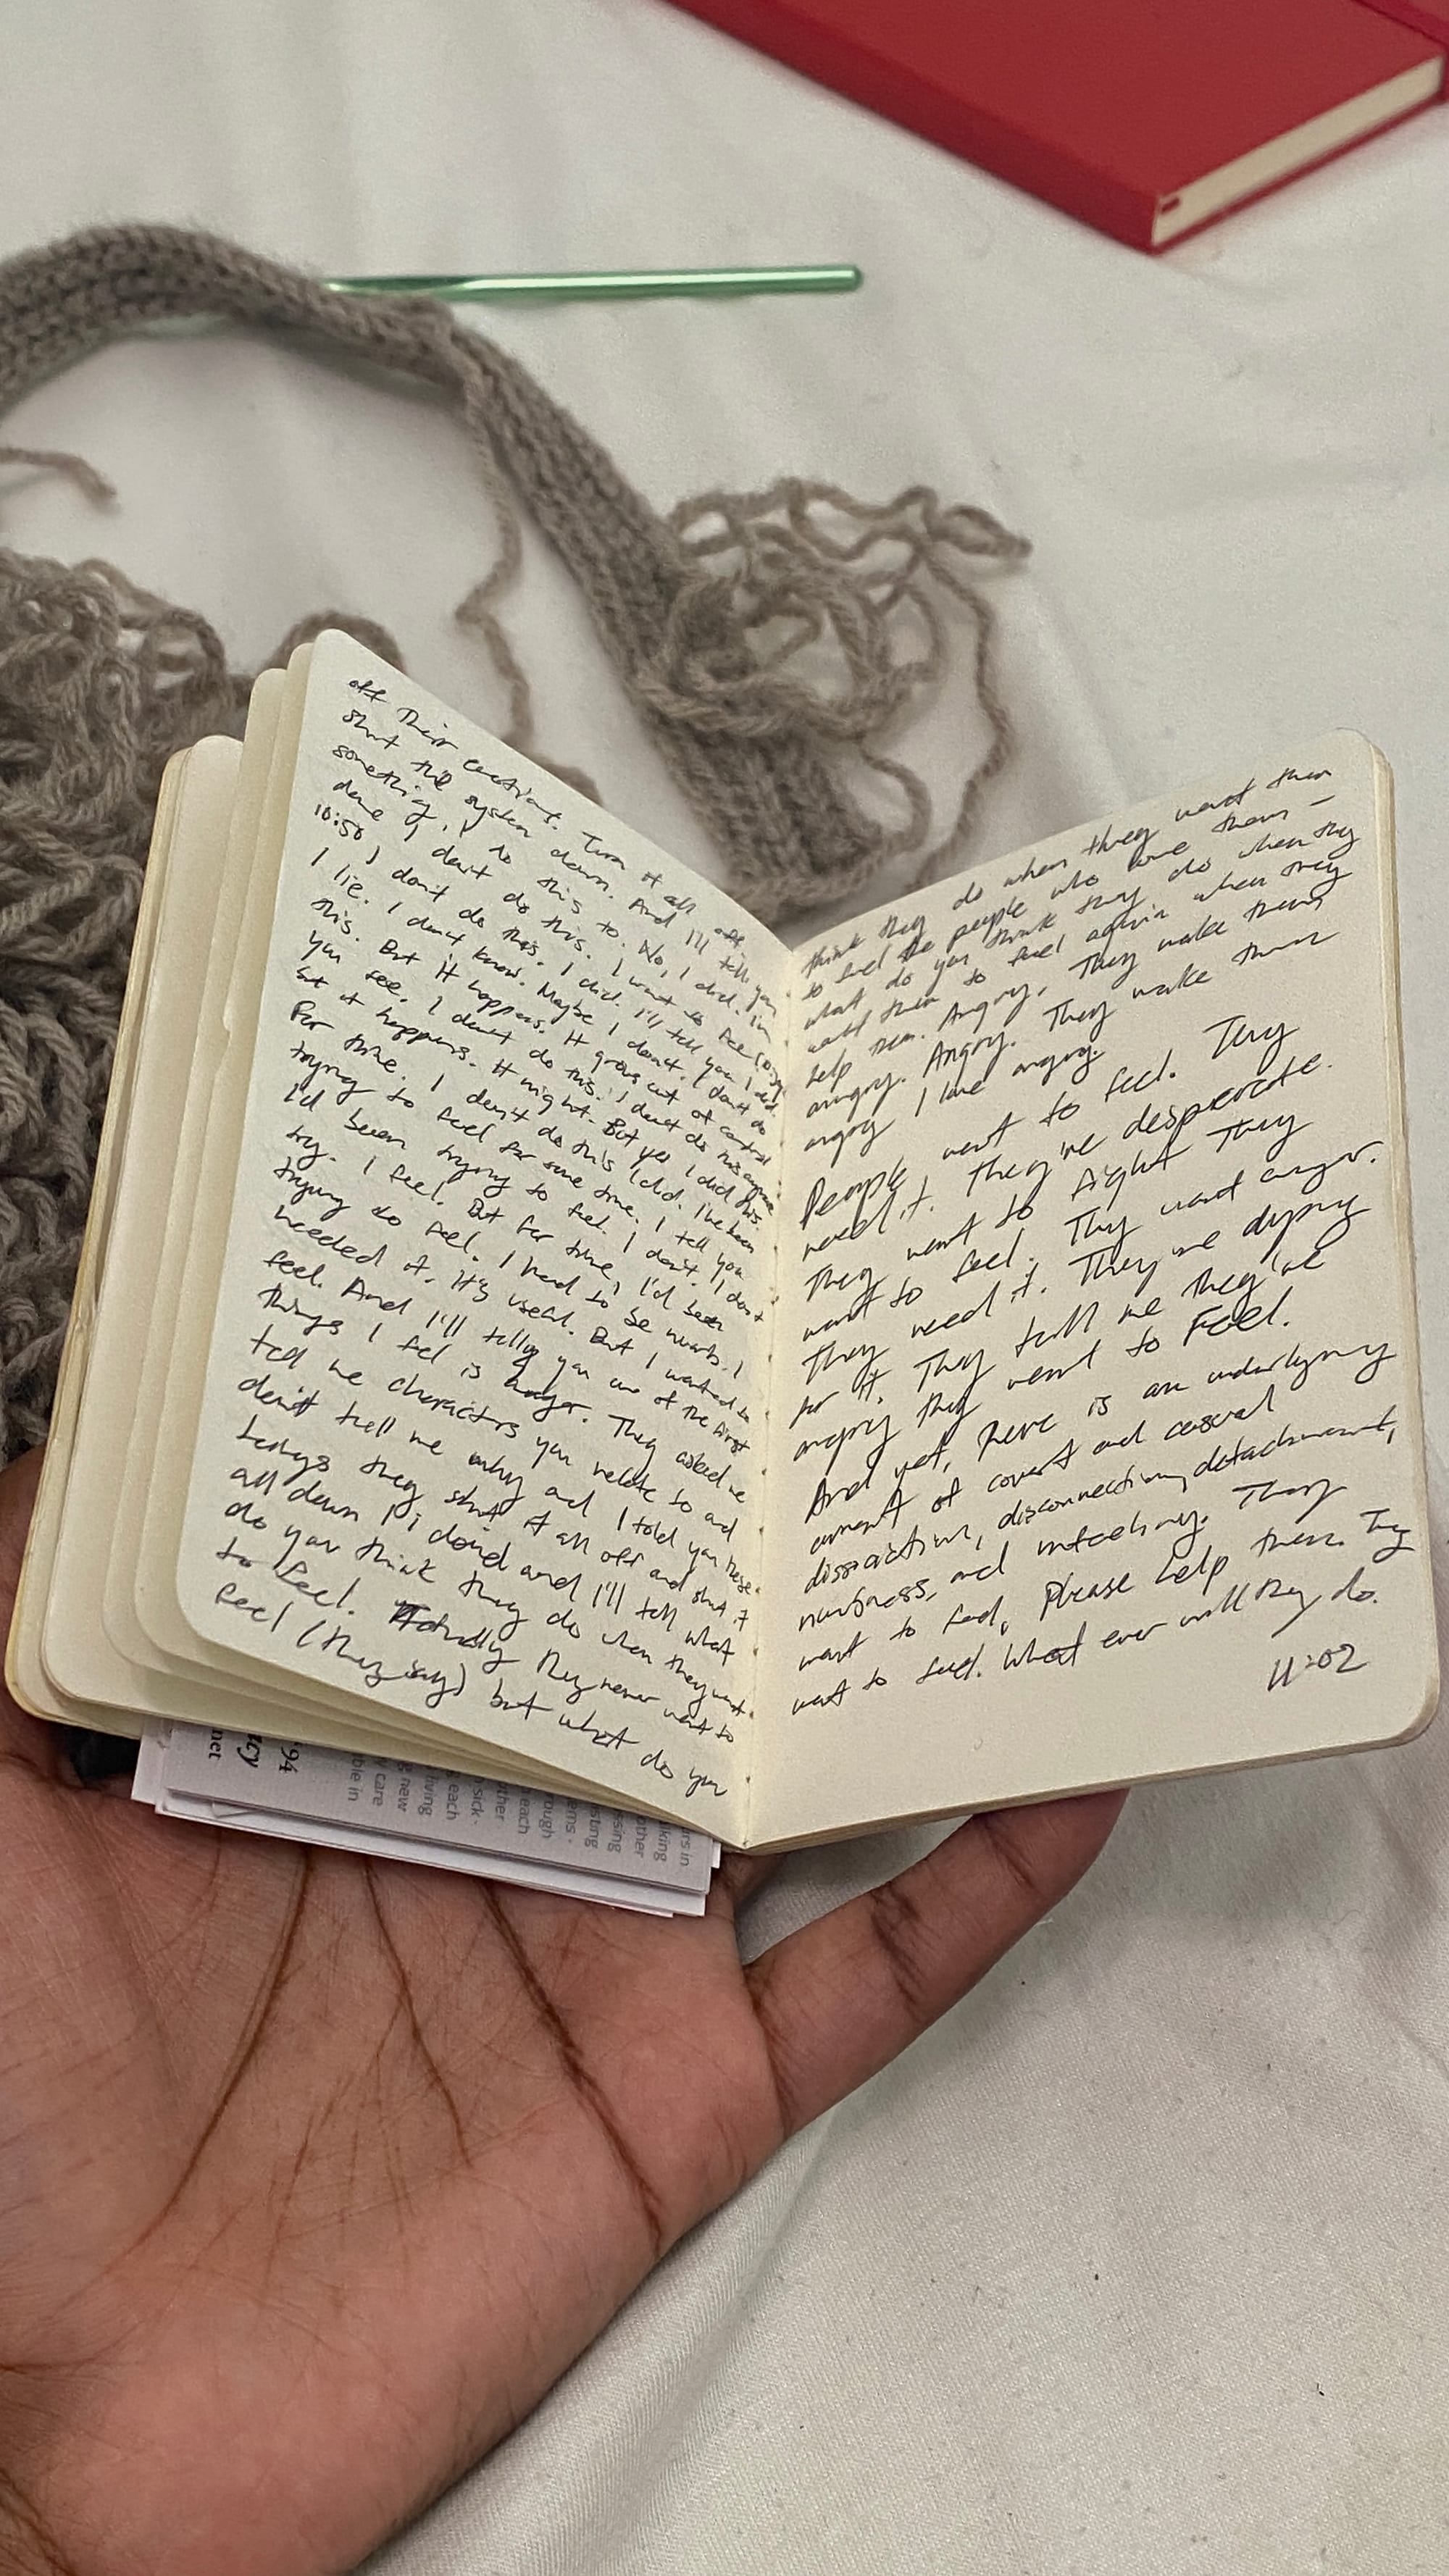 off their emotions. Turn it all off,
shut the system down. And I'll tell you
something, I do this to. No, I did. I'm
done I don't do this. I want to feel (10:59)
10:50 I don't do this. I did. I'll tell you I did.
I lie. I don't know. Maybe I don't. I don't do
this. But it happens. It grows out of control
you see. I don't do this. I don't do this anymore
but it happens. It might. But yes I did this.
For time. I don't do this I did. I've been
trying to feel for some time. I tell you
I'd been trying to feel. I don't. I don't
try. I feel. But for time, I'd been
trying to feel. I had to be numb. I
needed it. It's useful. But I wanted to
feel. And I'll tell you one of the first
things I feel is anger. They asked me
tell me characters you relate to and
don't tell me why and I told you these.
they shut it all off and shut it
all down I, did and I'll tell what
do you think they do when they want
to feel. Actually they never want to
feel (they say) but what do you
think they do when they want them
to feel the people who love them —
what do you think they do when they
want them to feel again when they
help them. Angry, They make them
angry. Angry. They make them
angry I love angry.
People want to feel. They
need it. They're desperate.
They want to fight They
want to feel. They want anger.
They need it. They're dying
for it. They tell me they're
angry they want to Feel.
And yet, there is an underlying
current of covert and casual
dissociation, disconnection, detachment,
numbness, and unfeeling. They
want to feel, Please help them. They
want to feel. What ever will they do.
11:02
'94
net
ble in
care
new
living
each
sick-
other
each
rough
ems -
sting
using
other
lking
rs in